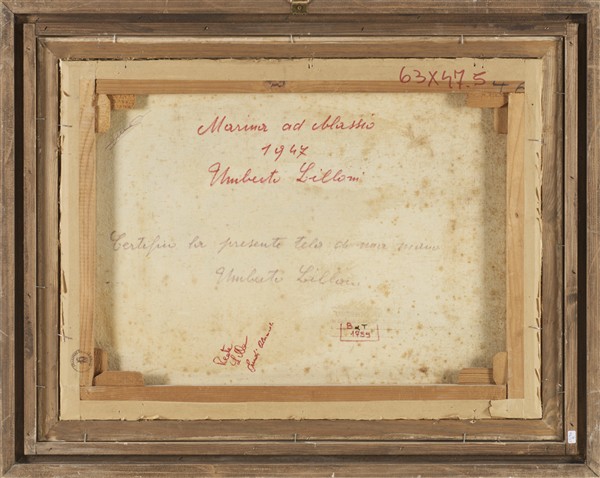 63x47.5
Marina ad Alassio
1947
Umberto Lilloni
Certifico la presente tela di mia mano
Umberto Lilloni
B x T
1959